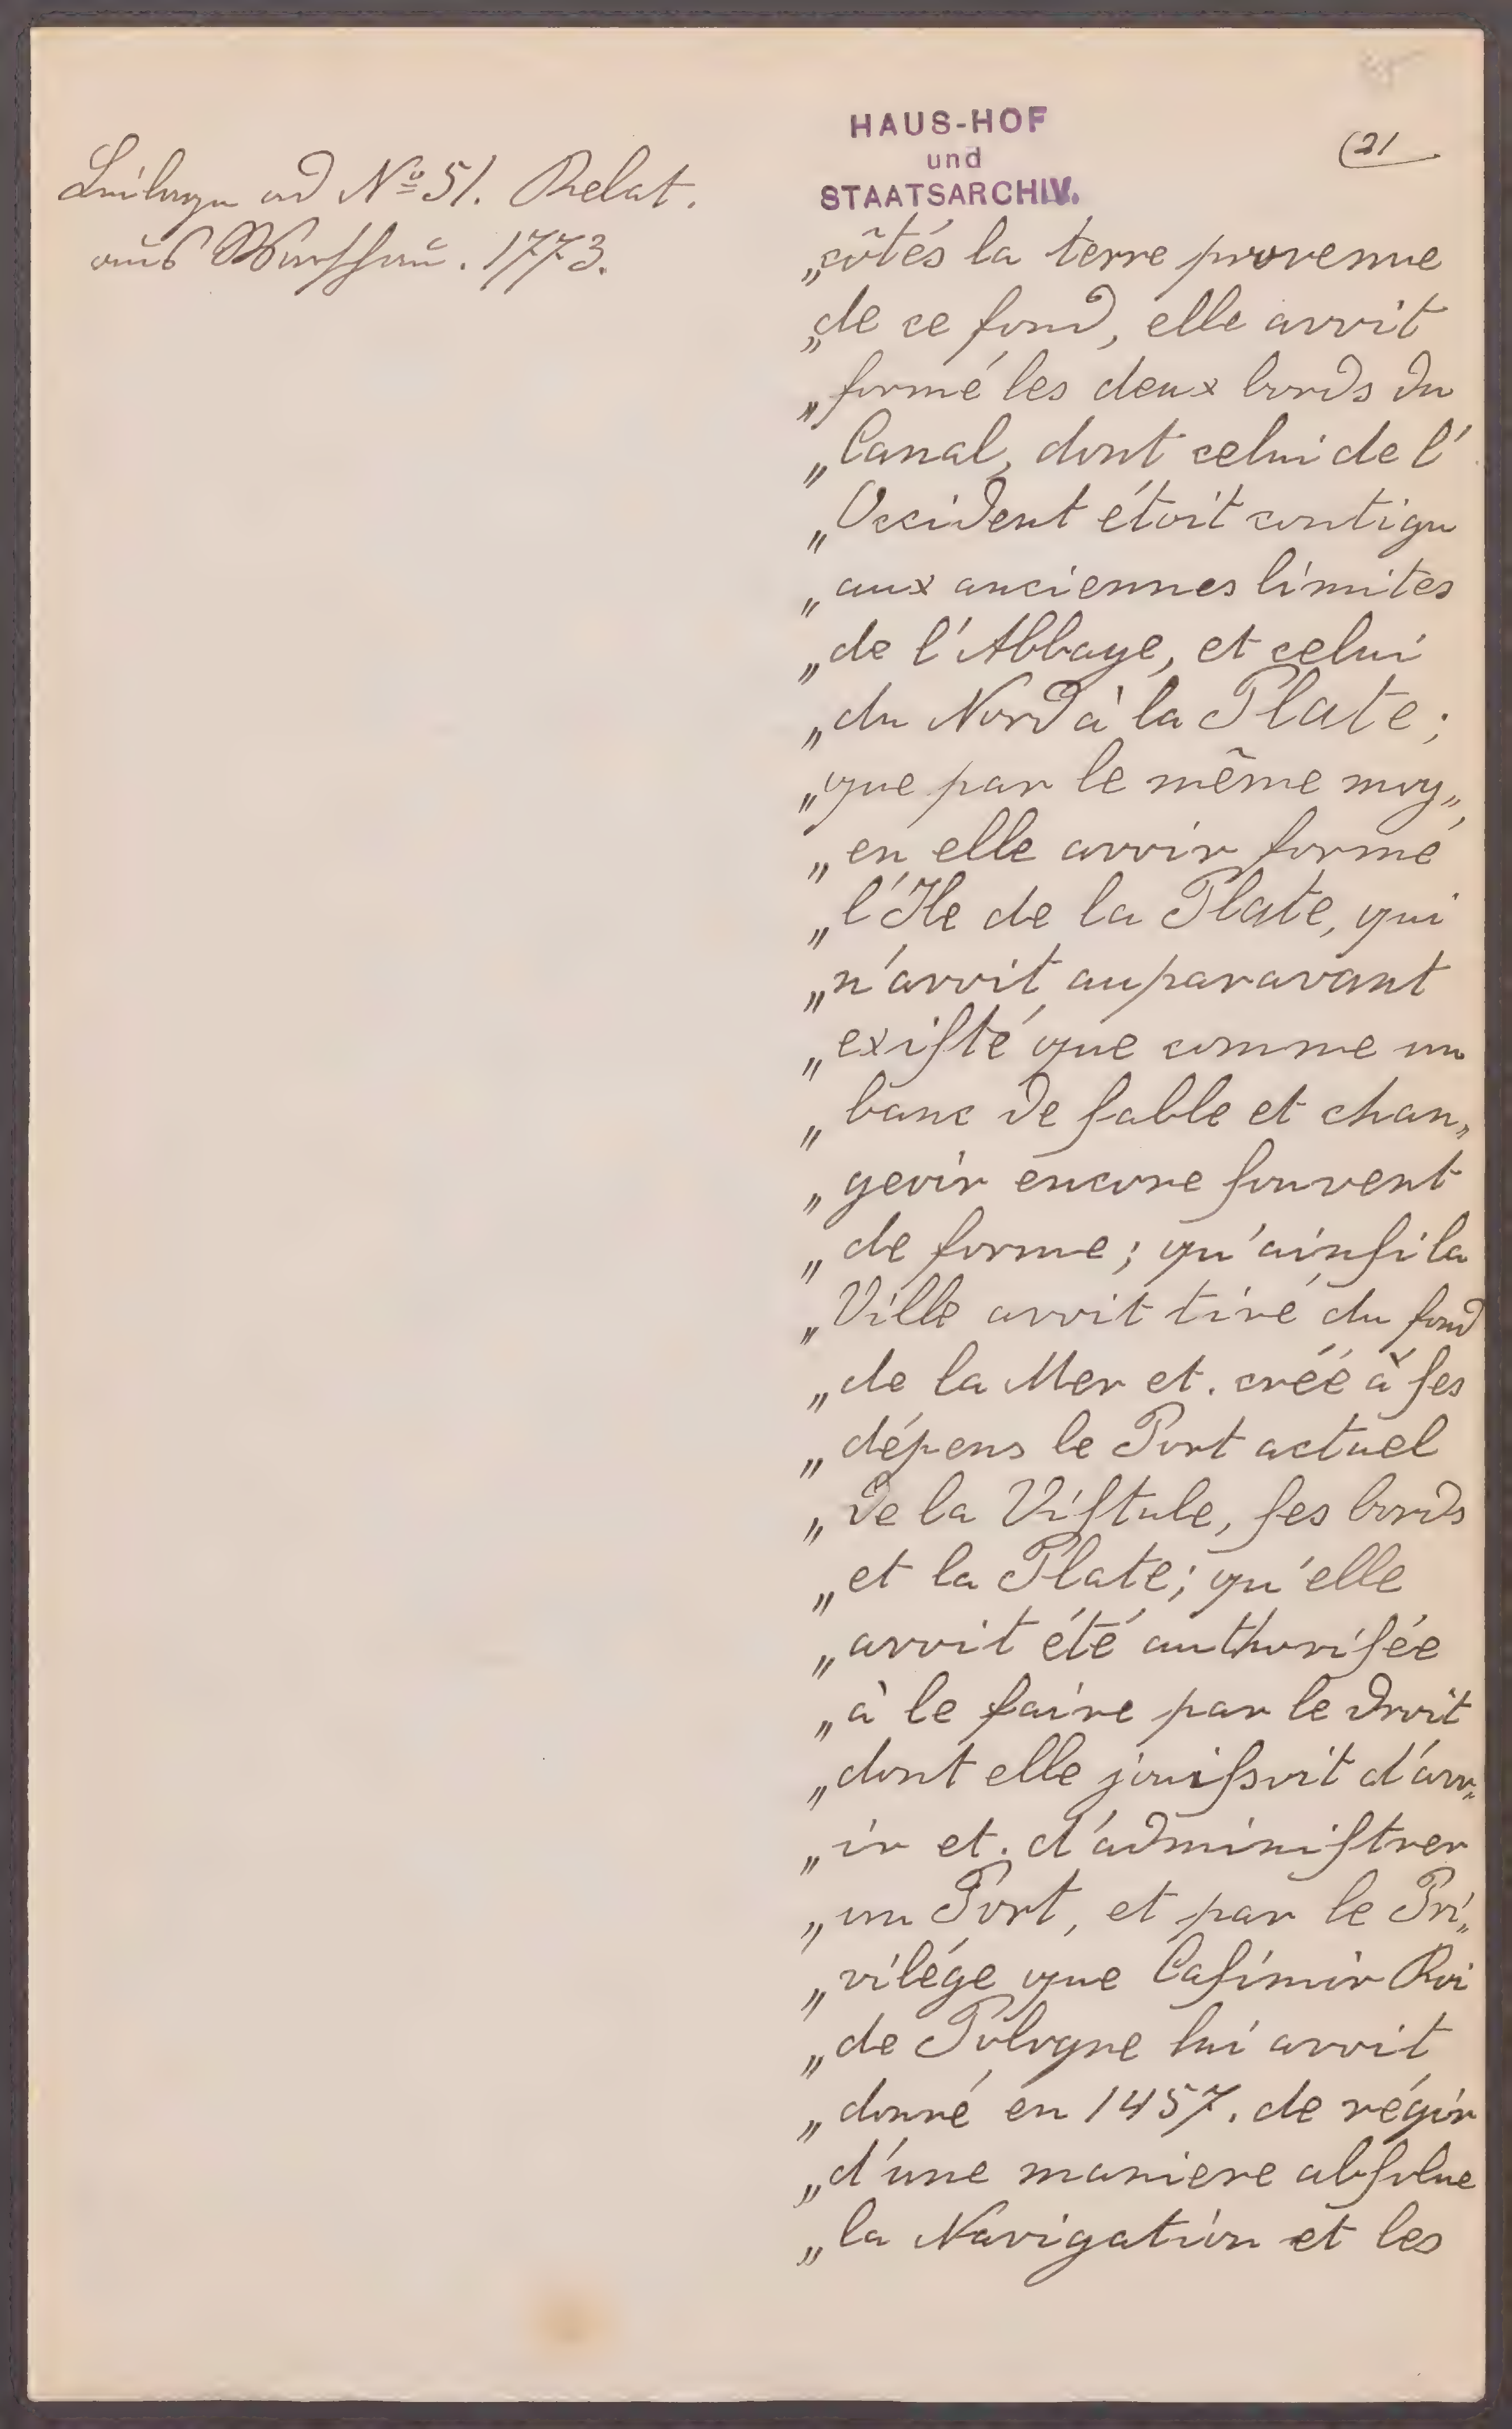 Beilage ad No 51. Relat.
aus Warschau. 1773.
HAUS-HOF
und
STAATSARCHIV.
(21
„côtés la terre provenue
„de ce fond, elle avoit
„formé les deux bords du
„Canal, dont celui de l'
„Occident étoit contigu
„aux anciennes limites
„de l'Abbaye, et celui
„du Nord à la Plate;
„que par le même moy„
„en elle avoir formé
„l'Ile de la Plate, qui
„n'avoit auparavant
„exiſté que comme un
„banc de ſable et chan„
„geoir encore ſouvent
„de forme; qu'ainſi la
„Ville avoit tiré du fond
„de la Mer et. créé à ſes
„dépens le Port actuel
„de la Viſtule, ſes bords
„et la Plate; qu'elle
„avoit été authoriſée
„à le faire par le droit
„dont elle jouiſsoit d'avo„
„ir et. d'adminiſtrer
„un Port, et par le Pri„
„vilége que Caſimir Roi
„de Pologne lui avoit
„donné en 1457. de régir
„d'une maniere abſolue
„la Navigation et les